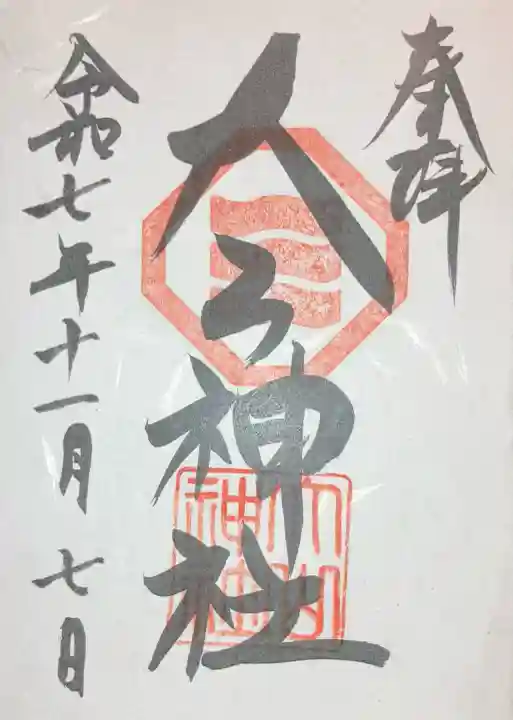 奉拝
大山神社
令和七年十一月七日
大山
神社